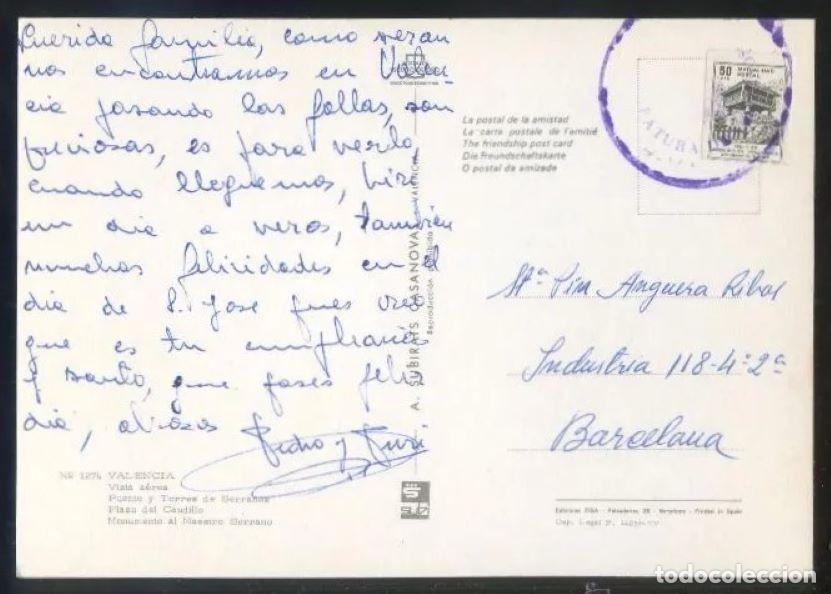 Querida familia, como veran
nos encontramos en Valen-
cia pasando las fallas, son
preciosas, es para verlo,
cuando lleguemos,
un dia a veros, tambien
muchas felicidades en el
dia de S. Jose pues creo
que es tu cumpleaños
y santo, que pases feliz
dia, abrazos
Pedro y
Nº 127 VALENCIA
Vista aérea
Puente y Torres de Serranos
Plaza del Caudillo
Monumento al Maestro Serrano
A. SUBIRATS CASANOVA - VALENCIA
Reproducción prohibida
La postal de la amistad
La carte postale de l'amitié
The friendship post card
Die Freundschaftskarte
O postal da amizade
50
CTS
MUTUALIDAD
POSTAL
Mª Pin Anguera Ribas
Industria 118-4º-2ª
Barcelona
Ediciones - Barcelona - Printed in Spain
Dep. Legal B.
todocoleccion
todocoleccion.net